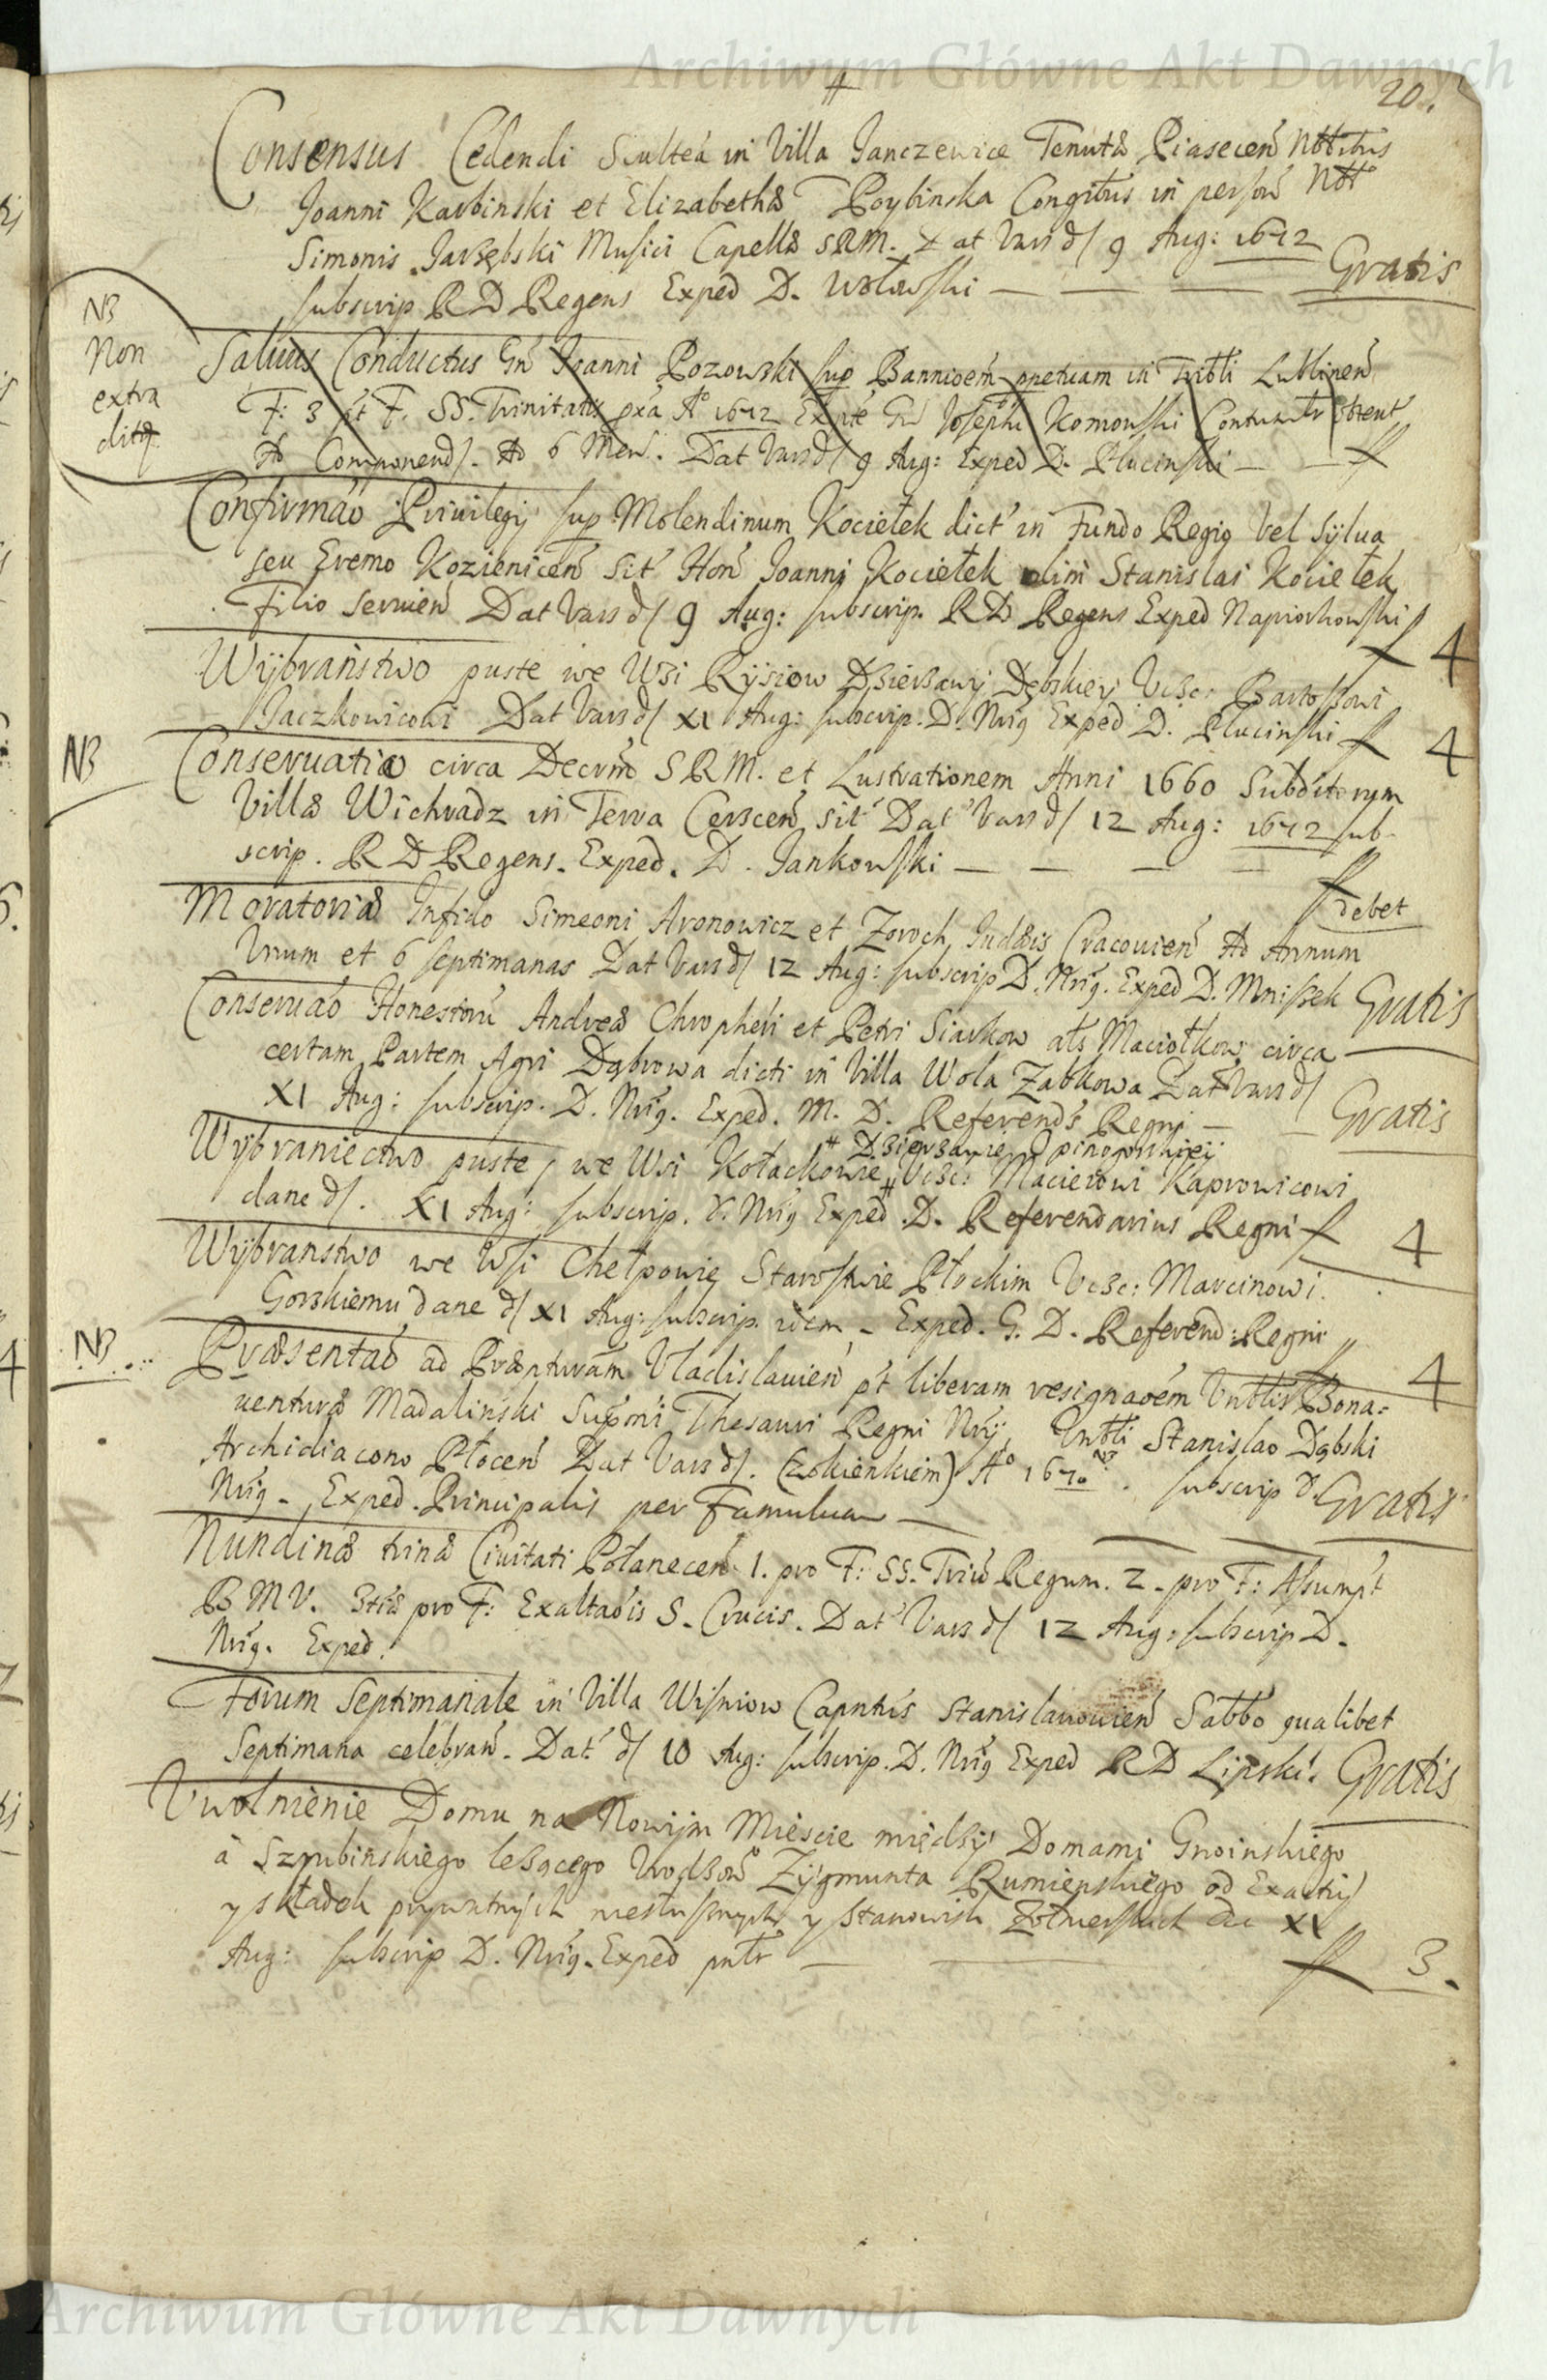 Archiwum Główne Akt Dawnych
20.
Consensus Cedendi Scultea in Villa Janczewice Tenutæ Piasecen Nbbtibus
Joanni Karbinski et Elizabethæ Poybinska Congibus in person Nob
Simonis Jarzębski Musici Capellæ SRM. Dat Vars d/ 9 Aug: 1672
subscrip RD Regens Exped D. Wołowski — — — — Gratis
NB
Non
extra
dita
Salvus Conductus Gn Joanni Rozowski sup Bannioem ppetuam in Tribli Lublinen
F: 3 pt F. SS. Trinitatis pxa Ao 1672 Ex pte Gn Josephi Komowski Contum obtent
Ad Componend/. Ad 6 Men. Dat Vars d/ 9 Aug: Exped D. Plucinski — — ff
Confirmao Privilegij sup Molendinum Kociełek dict in Fundo Regio vel Sylva
seu Eremo Kozienicen Sit Hon Joanni Kociełek olim Stanislai Kociełek
Filio servien Dat Vars d/ 9 Aug: subscrip. RD Regens Exped Napiorkowski ff 4
Wybraństwo puste we Wsi Rysiow Dzierżawy Dębskiey Uczc: Bartoszowi
Jaczkowicowi Dat Vars d/ XI Aug: subscrip. D. Nrig Exped D. Plucinski ff 4
NB
Conservatio circa Decrm SRM. et Lustrationem Anni 1660 Subditorum
Villæ Wichradz in Terra Cerscen Sit Dat Vars d/ 12 Aug: 1672 sub-
scrip. RD Regens. Exped. D. Jankowski — — — — ff
debet
Moratoria Infido Simeoni Aronowicz et Zoroch Judæis Cracovien Ad Annum
Unum et 6 septimanas Dat Vars d/ 12 Aug: subscrip D. Nrig. Exped D. Mniszek Gratis
Conservao Honestoru Andreæ Chropheri et Petri Siarkow als Maciołkow circa
certam Partem Agri Dąbrowa dicti in Villa Wola Zabkowa Dat Vars d/
XI Aug: subscrip. D. Nrig. Exped. M. D. Referend Regni — — Gratis
# Dzierzawie Opinogorskiej
Wybraniectwo puste, we Wsi Kołaczkowie # Uczc: Macieiowi Kaprowicowi
dane d/. XI Aug: subscrip. D. Nrig Exped. D. Referendarius Regni ff 4
Wybranstwo we Wsi Chełpowię Starostwie Płockim Uczc: Marcinowi
Gorskiemu dane d/ XI Aug: subscrip. idem. Exped. G. D. Referend: Regni ff 4
NB
Præsentao ad Præpturam Vladislavien pt liberam resignaoem Vnblis Bona-
venturæ Madalinski Supmi Thesauri Regni Nrij, Vnbli Stanislao Dąbski
Archidiacono Płocen Dat Vars d/. (zokienkiem) Ao 1670. NB subscrip D.
Nrig. Exped. Principalis per Famulum — Gratis
Nundinæ trinæ Civitati Połanecen 1. pro F: SS. Triu Regum. 2. pro F: Assumpt
BMV. 3tiæ pro F: Exaltaois S. Crucis. Dat Vars d/ 12 Aug: subscrip D.
Nrig. Exped.
Forum Septimanale in Villa Wiśniow Capntus Stanislawowien Sabbo qualibet
Septimana celebran. Dat d/ 10 Aug: subscrip. D. Nrig Exped RD Lipski. Gratis
Uwolnienie Domu na Nowym Mieście między Domami Gnoinskiego
a Szrubińskiego leżącego Urodzon Zygmunta Rumienskiego od Exactiy
y składek prywatnych niesłusznych y Stanowisk Żołnierskich de XI
Aug: subscrip D. Nrig. Exped — ff 3.
Archiwum Główne Akt Dawnych